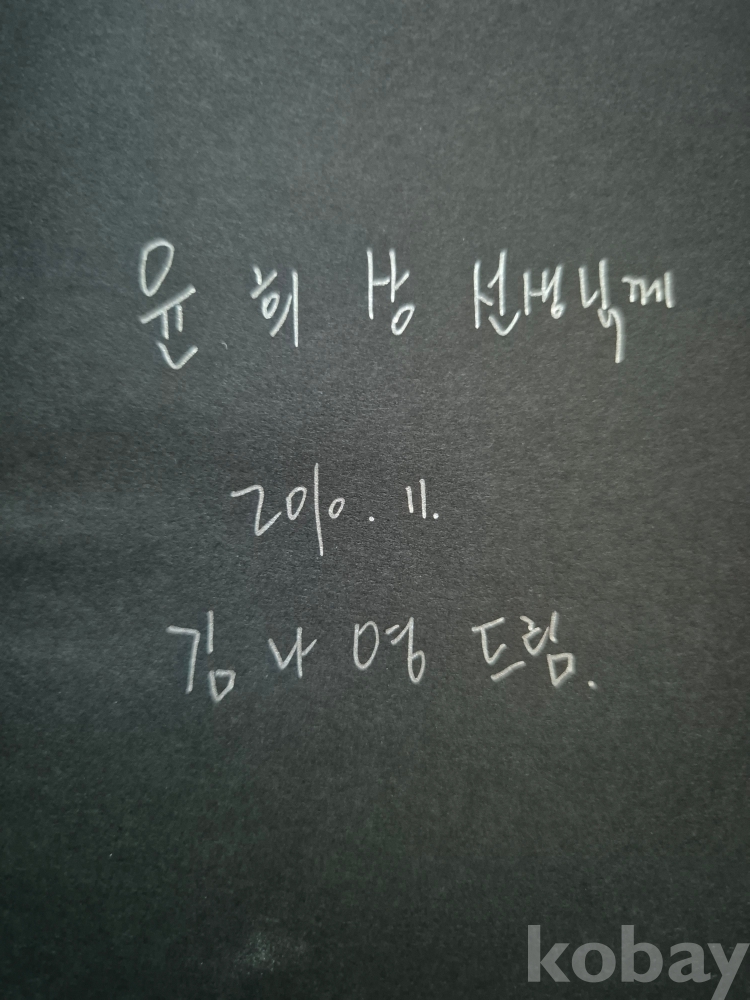 윤 희 상 선생님께
2010. 11.
김 나 영 드림.
kobay